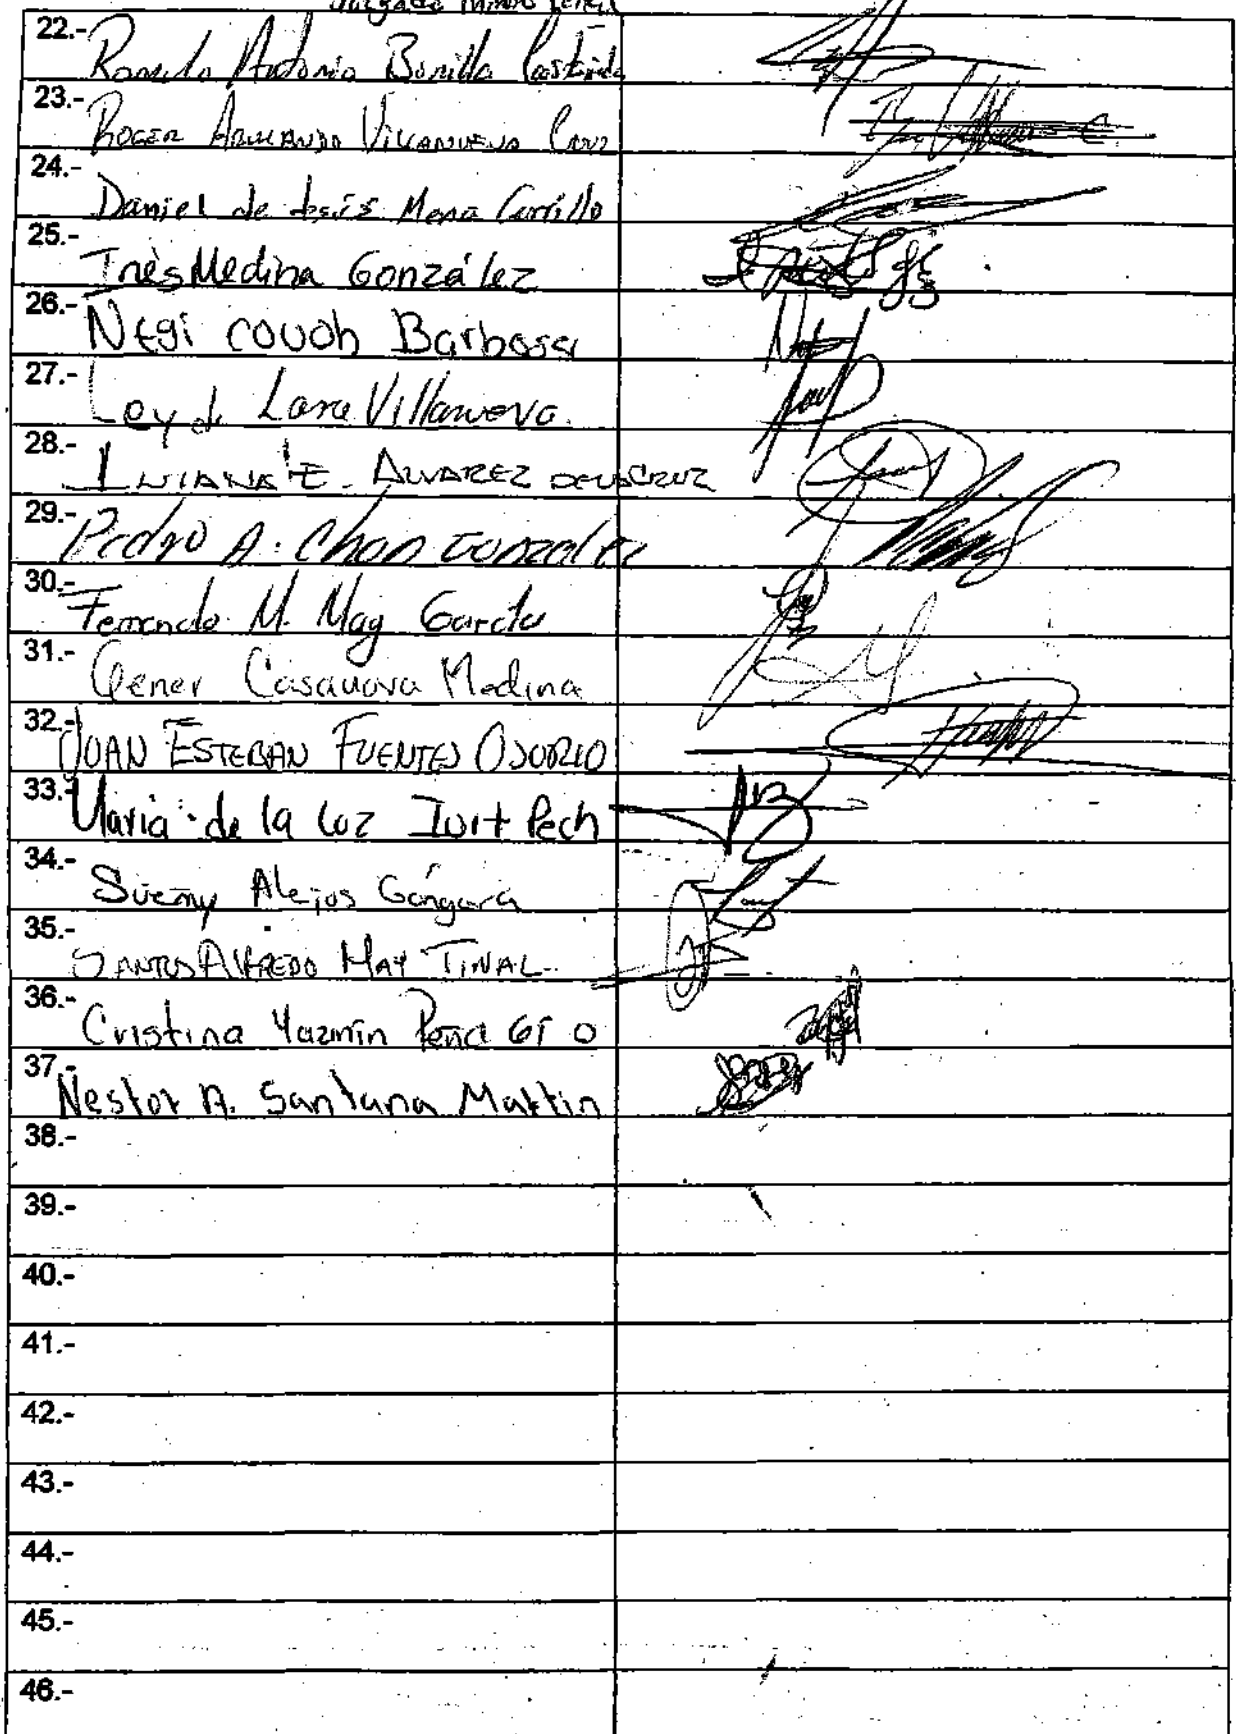 Juzgado Mixto Penal
22.- Romulo Antonio Bonilla Castañeda
23.- ROGER ARMANDO VILLANUEVA
24.- Daniel de Jesús Mena Carrillo
25.- Inés Medina González
26.- Negi couoh Barbosa
27.- Leydi Lara Villanueva.
28.- E. ALVAREZ DE LA CRUZ
29.- Pedro A. Chan González
30.- Fernando M. May García
31.- Gener Casanova Medina
32.- JUAN ESTEBAN FUENTES OSORIO
33.- Maria de la luz Iuit Pech
34.- Suemy Alejos Góngora
35.- SANTOS ALFREDO MAY TINAL
36.- Cristina Yazmín Peña
37.- Nestor A. Santana Martin
38.-
39.-
40.-
41.-
42.-
43.-
44.-
45.-
46.-